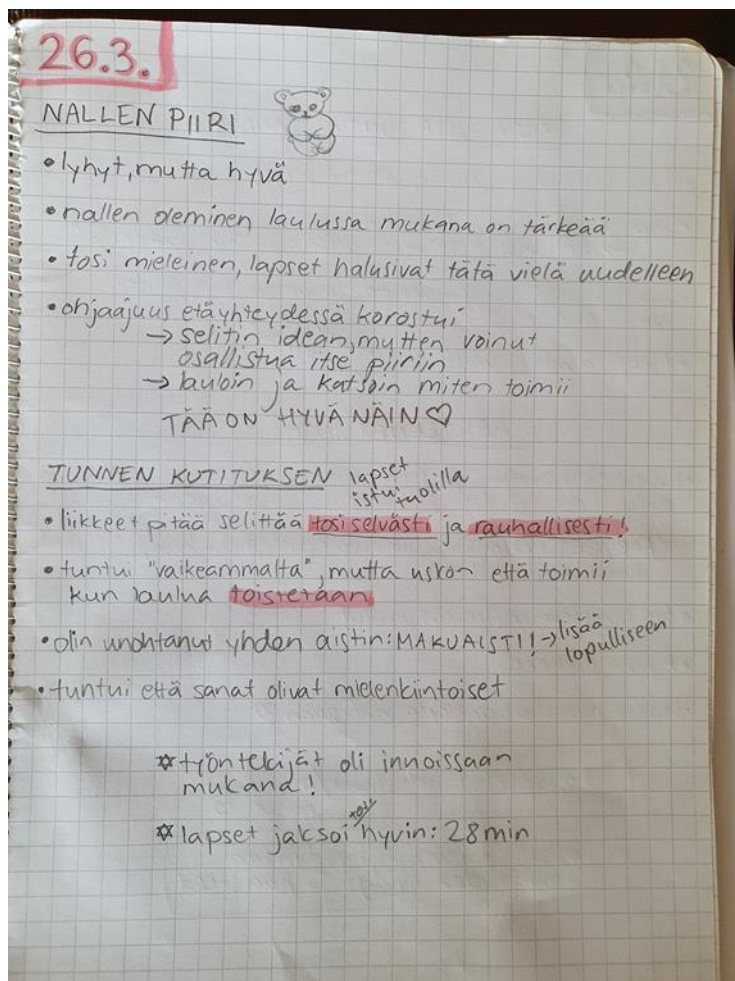 26.3.
NALLEN PIIRI
• lyhyt, mutta hyvä
• nallen oleminen laulussa mukana on tärkeää
• tosi mieleinen, lapset halusivat tätä vielä uudelleen
• ohjaajuus etäyhteydessä korostui
→ selitin idean, mutten voinut
osallistua itse piiriin
→ lauloin ja katsoin miten toimii
TÄÄ ON HYVÄ NÄIN ♡
TUNNEN KUTITUKSEN lapset
istui tuolilla
• liikkeet pitää selittää tosi selvästi ja rauhallisesti!
• tuntui "vaikeammalta", mutta uskon että toimii
kun laulua toistetaan
• olin unohtanut yhden aistin: MAKUAISTI! → lisää
lopulliseen
• tuntui että sanat olivat mielenkiintoiset
✡ työntekijät oli innoissaan
mukana!
✡ lapset jaksoi tosi hyvin: 28 min